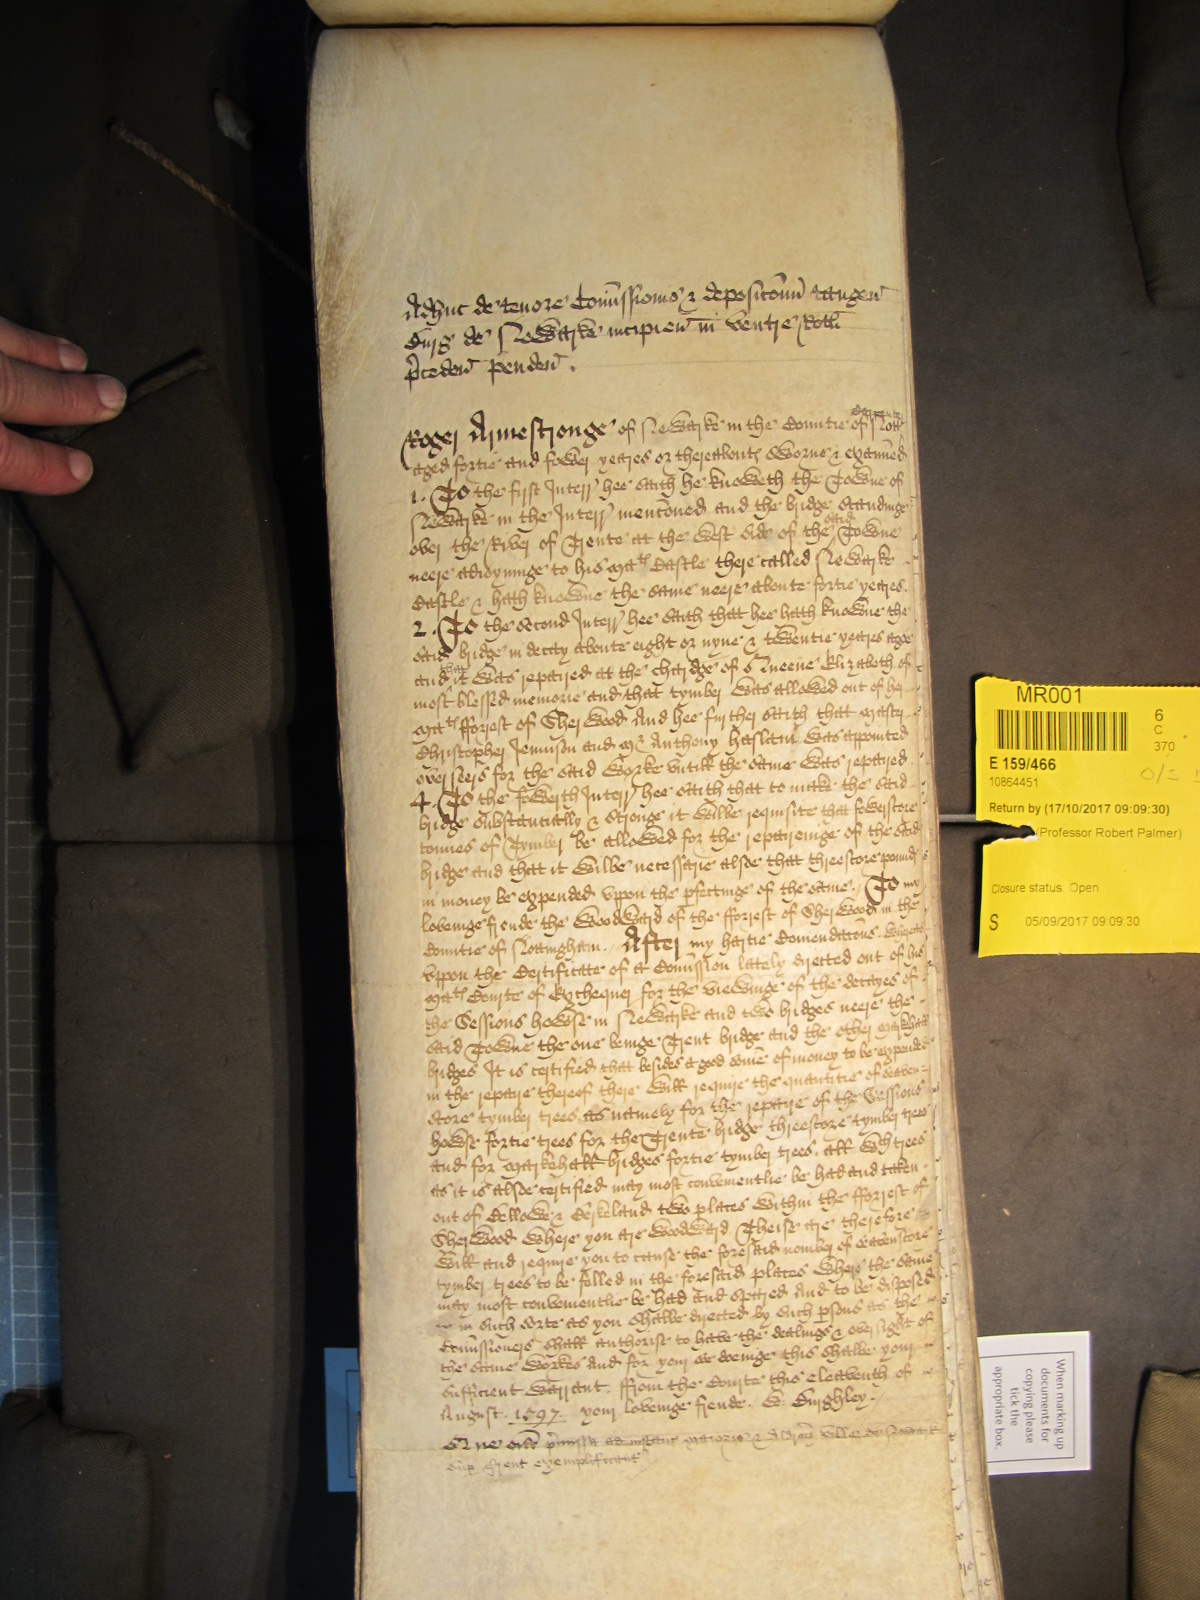 Adhuc de tenore Com̄issionis & depositionū tangen̄
Burg de Newarke incipien̄ in ventre Rotłi
p̄ceden̄ penden̄.
Carpenter
Roger Armestronge of Newarke in the Countie of Nott
aged fortie and fower yeares or thereabouts sworne & exam̄ed
1. To the first Interr' hee saith he knoweth the Towne of
Newarke in the Interr' menc̄oned and the bridge standinge
over the River of Trente at the west side of the said Towne
neere adioyninge to his Matś Castle there called Newarke
Castle & hath knowne the same neere aboute fortie yeares.
2. To the second Interr' hee saith that hee hath knowne the
said bridge in decay aboute eight or nyne & twentie yeares agoe
and that it was repaired at the chardge of Queene Elizabeth of
most blessed memorie and that tymber was allowed out of her
Matś fforrest of Sherwood And hee further saith that Master
Christopher Jennison and Mr Anthony haslam was appointed
overseers for the said worke untill the same was repaired
4. To the fowerth Interr' hee saith that to make the said
bridge substantially & stronge it wilbe requisite that fowerscore
tonnes of Tymber be allowed for the repaireinge of the said
bridge and that it wilbe necessarie alsoe that threescore pounds
in money be expended uppon the pfectinge of the same. To my
loveinge frende the Woodward of the fforrest of Sherwood in the
Countie of Nottingham. After my hartie Com̄endac̄ons. Whereas
uppon the Certificate of a Com̄ission lately directed out of his
Matś Courte of Exchequer for the viewinge of the decayes of
the Sessions howse in Newarke and two bridges neere the
said Towne the one beinge Trent bridge and the other Markehall
bridges It is certified that besides a good some of money to be expended
in the repaire thereof there will require the quantitie of seaven
score tymber trees as namely for the repaire of the Sessions
howse fortie trees for the Trente bridge threescore tymber trees
and for Markehall bridges fortie tymber trees. all wch trees
as it is alsoe certified may most convenientlie be had and taken
out of Bellowe & Birkeland two places within the fforrest of
Sherwood where you are woodward Theise are therefore to
will and require you to cause the foresaid nomber of seavenscore
tymber trees to be felled in the foresaid places where the same
may most convenientlie be had and spared And to be disposed
in such sorte as you shalbe directed by such psons as the
Com̄issioners shall authorise to have the dealings & oversight of
the same workes And for your soe doeinge this shalbe your
sufficient warrant. ffrom the Courte this eleaventh of
August. 1597. your loveinge frende. W. Burghley.
Que om̄ia p̄missa ad instanc̄ Maioris & Aldroȝ ville de Newark
sup̄ Trent exemplificant'
MR001
6
C
370
E 159/466
10864451
Return by (17/10/2017 09:09:30)
(Professor Robert Palmer)
Closure status: Open
S 05/09/2017 09:09:30
When marking up
documents for
copying please
tick the
appropriate box.